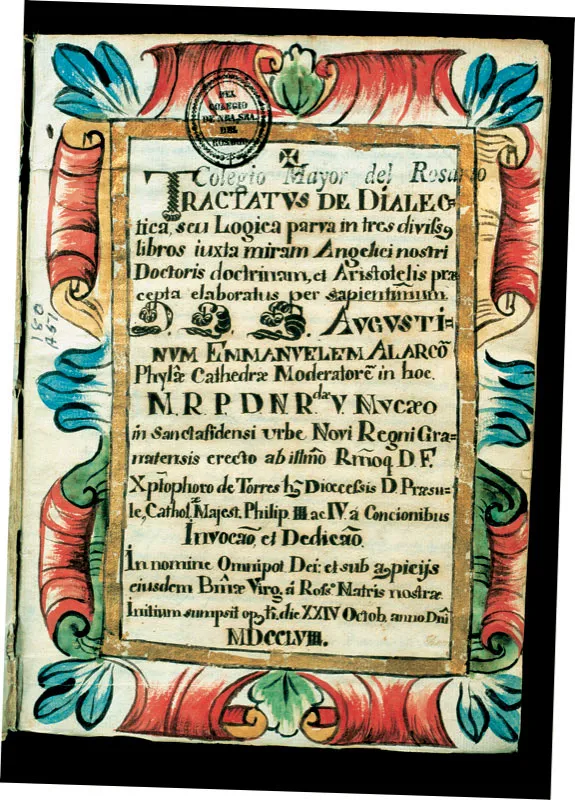 DEL
COLEGIO
DE NRA. SRA.
DEL
ROSARIO
Colegio Mayor del Rosario
TRACTATVS DE DIALEC-
tica, seu Logica parva in tres divissq
libros iuxta miram Angelici nostri
Doctoris doctrinam, et Aristotelis præ
cepta elaboratus per sapientim̄um.
D. D. D. AVGVSTI-
NVM EMMANVELEM ALARCŌ
Phylæ Cathedræ Moderatorē in hoc.
M. R. P. D. N. R.dæ V. MVCÆO
in Sanctafidensi Urbe Novi Regni Gra-
natensis erecto ab illm̄o Rm̄oq D. F.
Xpt̄ophoro de Torres Diœcessis D. Præsu-
le, Cathol. Majest. Philip. III ac IV á Concionibus
Invocaō, et Dedicaō.
In nomine Omnipot Dei: et sub apicijs
eiusdem Bm̄æ Virg. á Ross.o Matris nostræ
Initium sumpsit die XXIV Octob. anno Dn̄i
MDCCLVIII.
180
A51